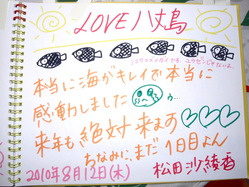 LOVE八丈島
本当に海がキレイで本当に
感動しました
来年も絶対来ます♡♡♡
ちなみに、まだ1日目よん
2010年8月12日(木) 松田沙綾香